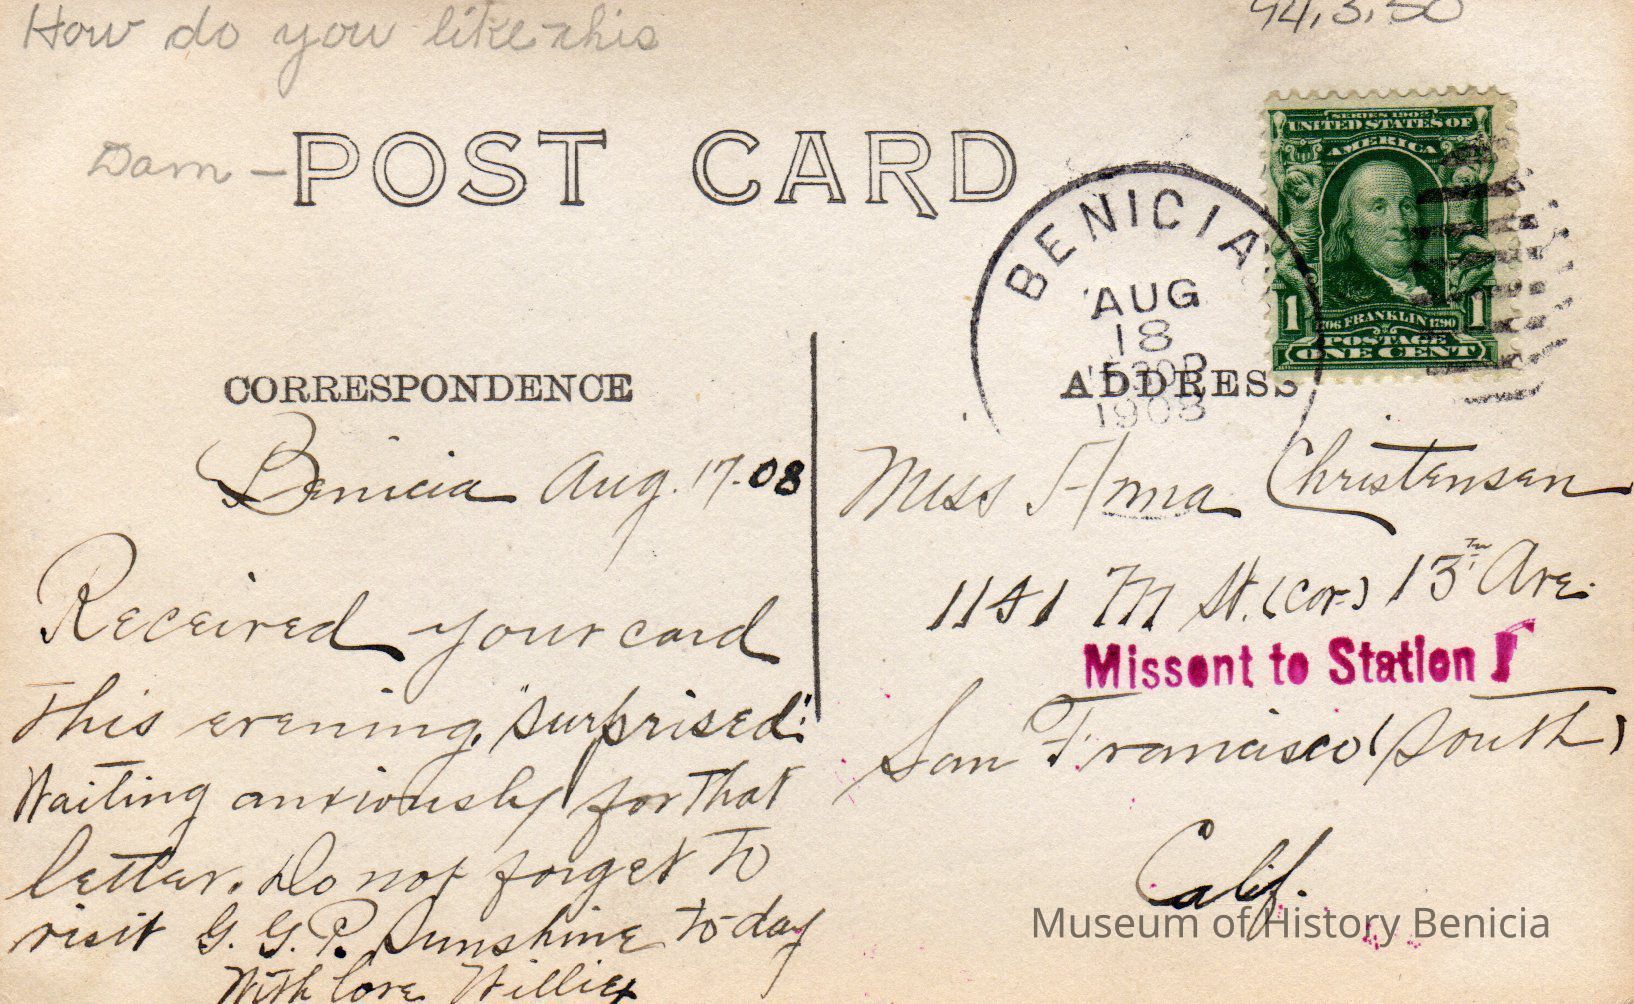 How do you like this
94.3.50
Dam –
POST CARD
SERIES 1902
UNITED STATES OF
AMERICA
1 1
1706 FRANKLIN 1790
POSTAGE
ONE CENT
BENICIA
AUG
18
530P
1908
CORRESPONDENCE
ADDRESS
Benicia Aug. 17-08
Received your card
this evening, "surprised".
Waiting anxiously for that
letter. Do not forget to
visit G. G. P. Sunshine to-day
With love Willie
Miss Anna Christensen
1141 M St. (cor.) 13th Ave.
Missent to Station
San Francisco (South)
Calif.
Museum of History Benicia